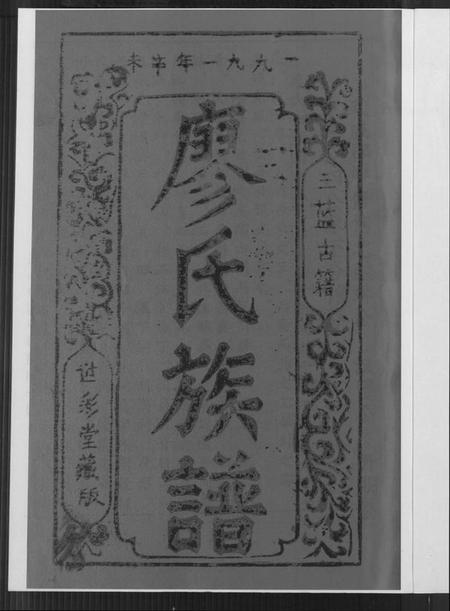 一九九一年辛未
三蓝古籍
廖氏族譜
世彩堂藏版